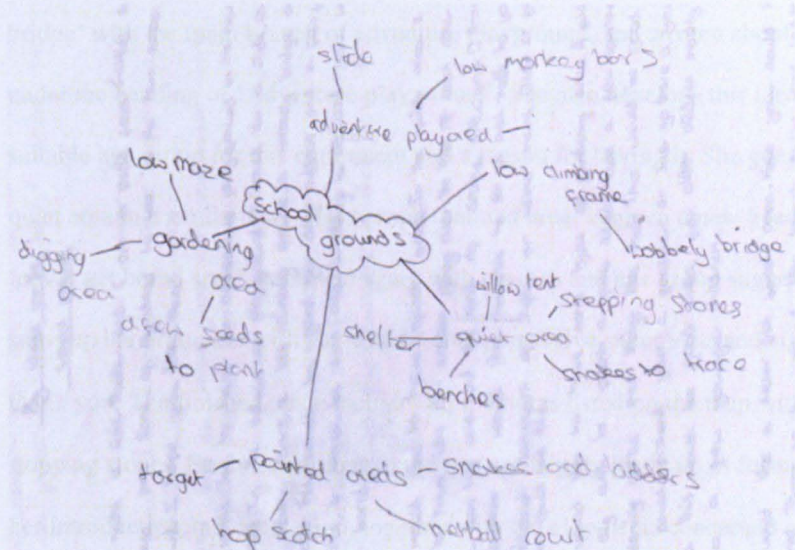 slide
low monkey bars
adventure playared
low climbing
frame
wobbely bridge
low maze
School
grounds
digging
area
gardening
area
a few seeds
to plant
willow tent
stepping stones
shelter
quiet area
snakes to trace
benches
target
painted areas
snakes and ladders
hop scotch
netball court